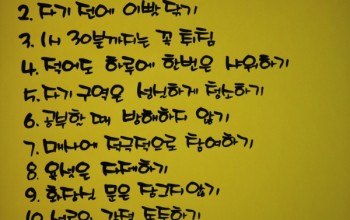 2. 자기 전에 이빨 닦기
3. 1시 30분까지는 꼭 취침
4. 적어도 하루에 한번은 샤워하기
5. 자기 구역은 성실하게 청소하기
6. 공부할 때 방해하지 않기
7. 매사에 적극적으로 참여하기
8. 욕설은 자제하기
9. 화장실 문은 잠그지 않기
10.